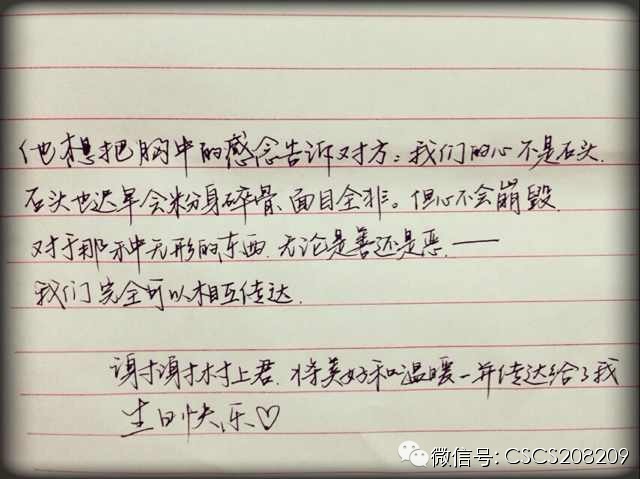 他想把胸中的感念告诉对方：我们的心不是石头.
石头也迟早会粉身碎骨、面目全非。但心不会崩毁.
对于那种无形的东西.无论是善还是恶.——
我们完全可以相互传达.
谢谢村上君.将美好和温暖一并传达给了我
生日快乐♡
微信号: CSCS208209